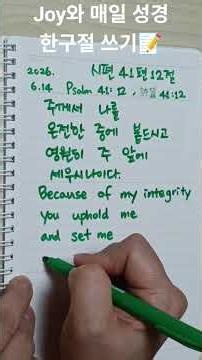 Joy와 매일 성경
한구절 쓰기📝
2026. 시편 41편 12절
6.14 Psalm 41:12, 41:12
주께서 나를
온전한 중에 붙드시고
영원히 주 앞에
세우시나이다.
Because of my integrity
you uphold me
and set me